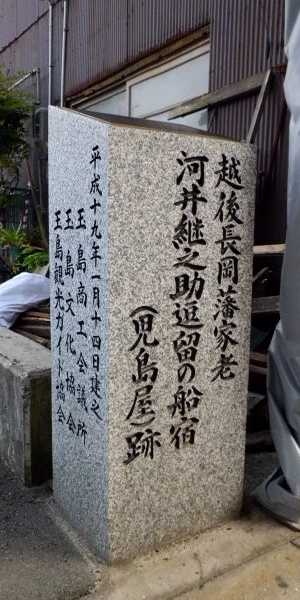 越後長岡藩家老
河井継之助逗留の船宿
(児島屋)跡
平成十九年一月十四日建之
玉島商工会議所
玉島文化協会
玉島観光ガイド協会